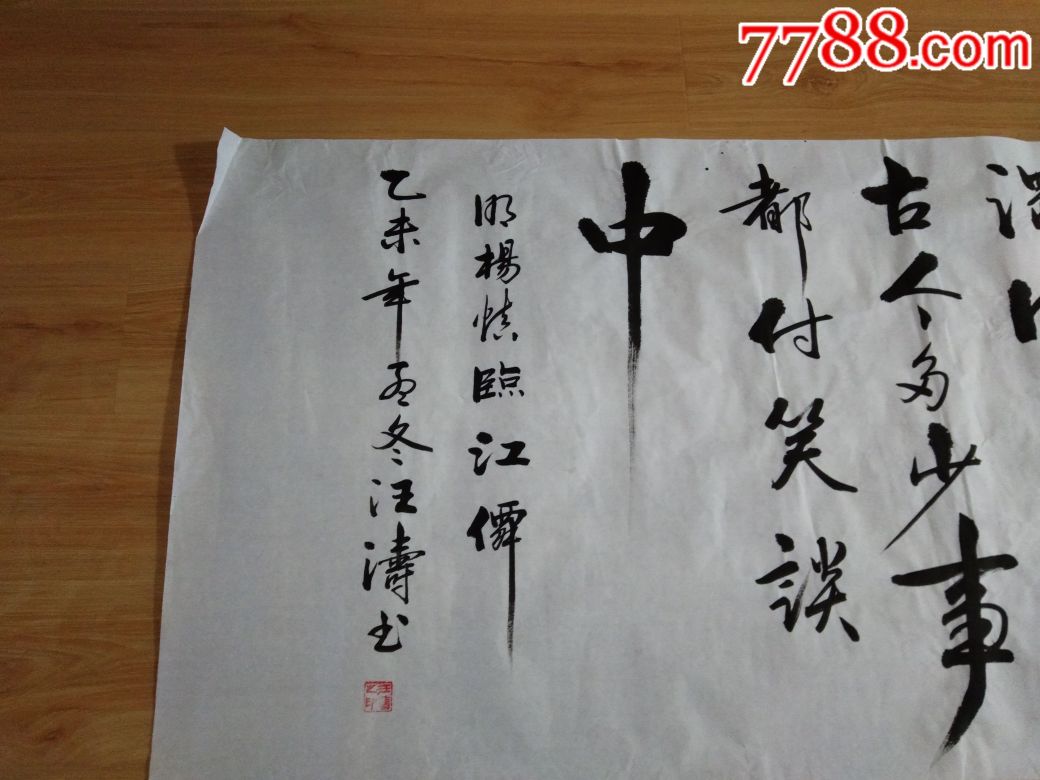 7788.com
古今多少事
都付笑談
中
明楊慎臨江僊
乙未年孟冬汪濤书